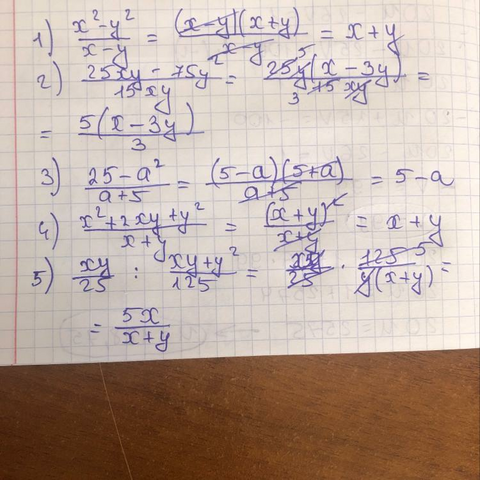 1) (x²-y²)/(x-y) = ((x-y)(x+y))/(x-y) = x+y
2) (25xy-75y²)/(15xy) = (25⁵y(x-3y))/(₃15xy) =
= (5(x-3y))/3
3) (25-a²)/(a+5) = ((5-a)(5+a))/(a+5) = 5-a
4) (x²+2xy+y²)/(x+y) = (x+y)²/(x+y) = x+y
5) xy/25 : (xy+y²)/125 = xy/25 · 125⁵/(y(x+y)) =
= 5x/(x+y)